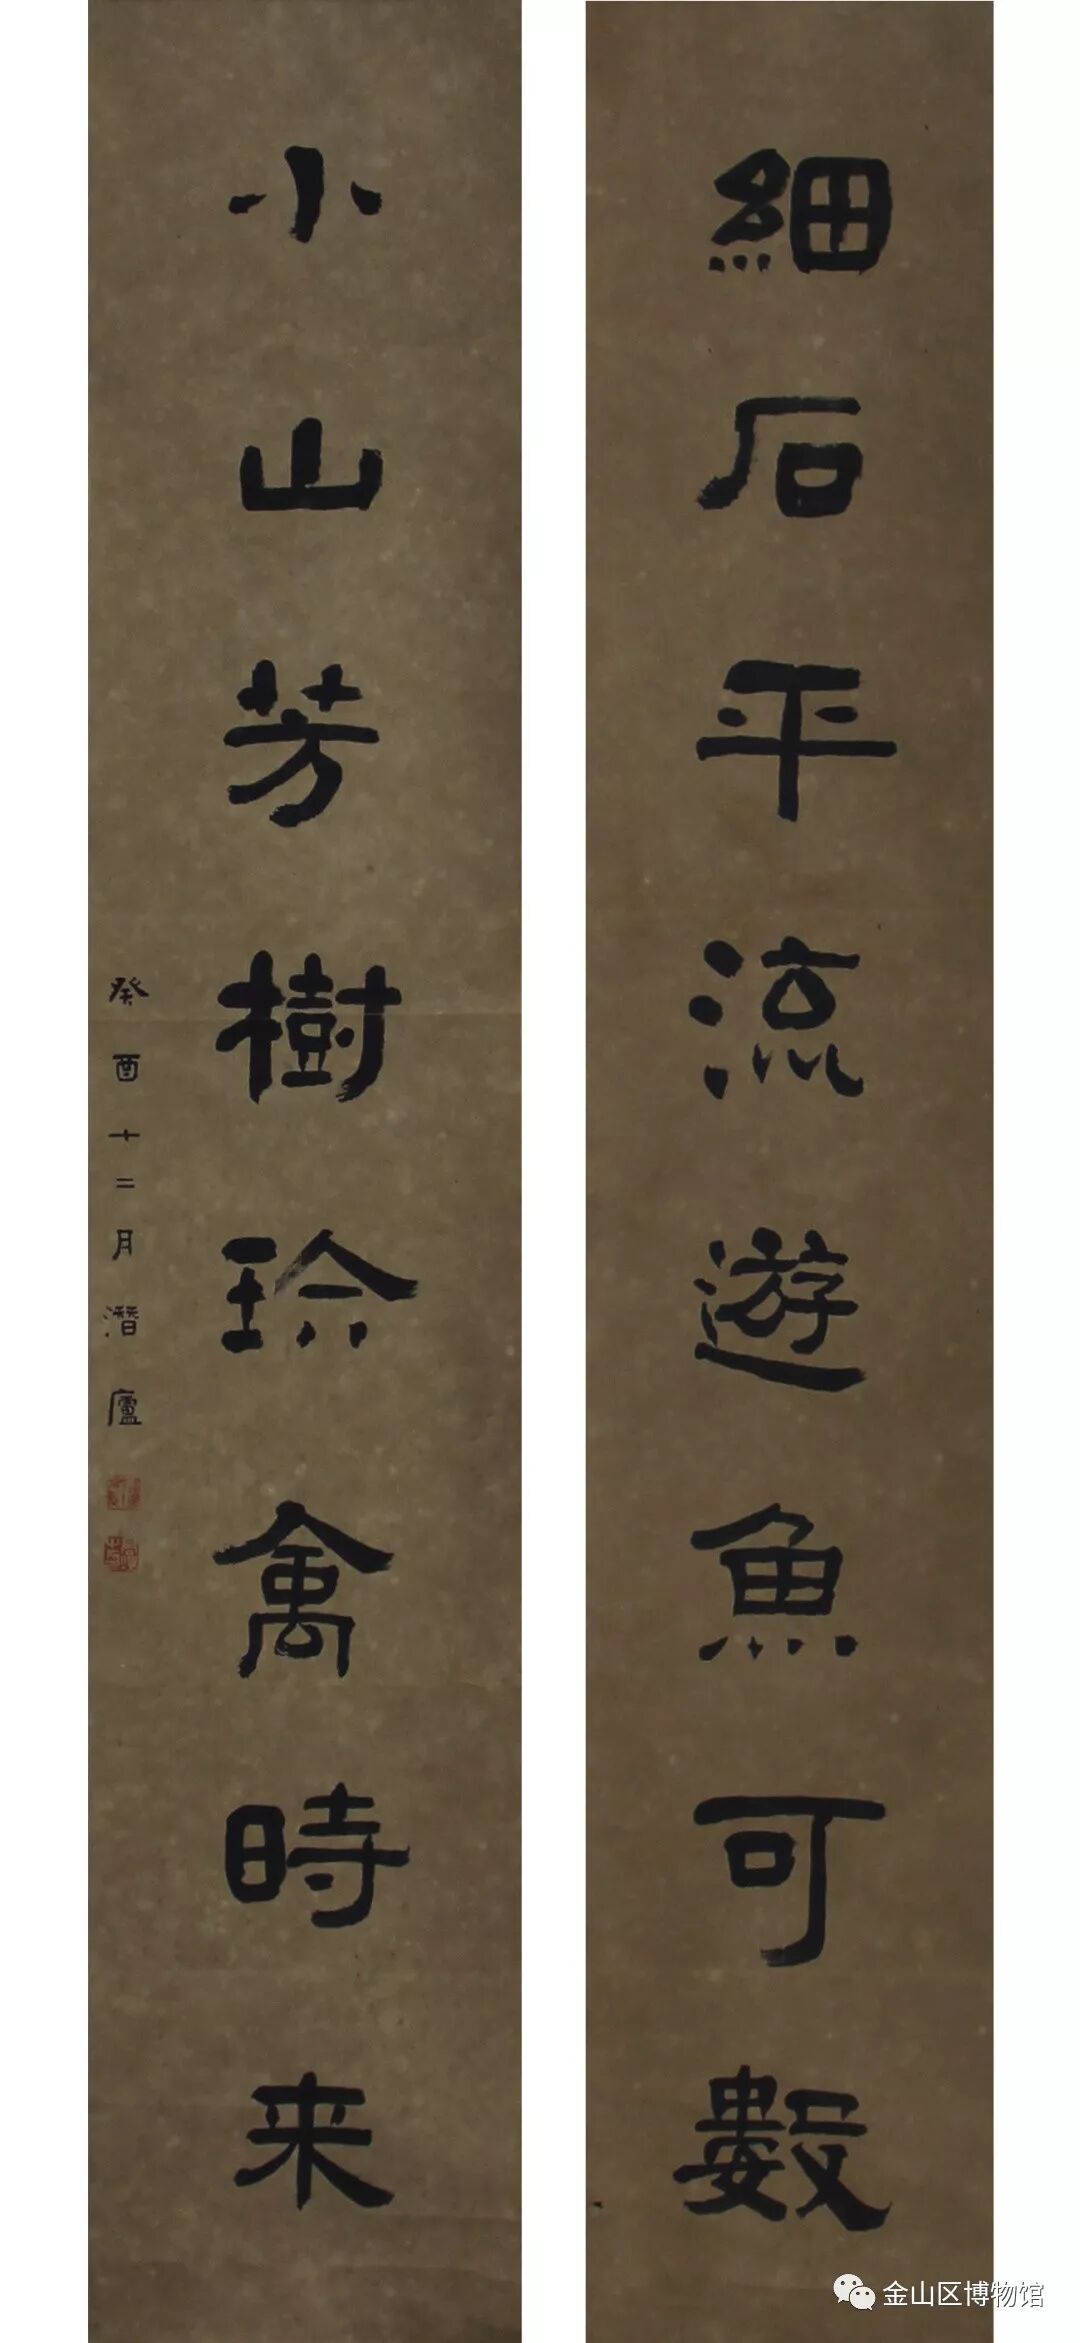 細石平流遊魚可數
小山芳樹珎禽時来
癸酉十二月潛廬
金山区博物馆